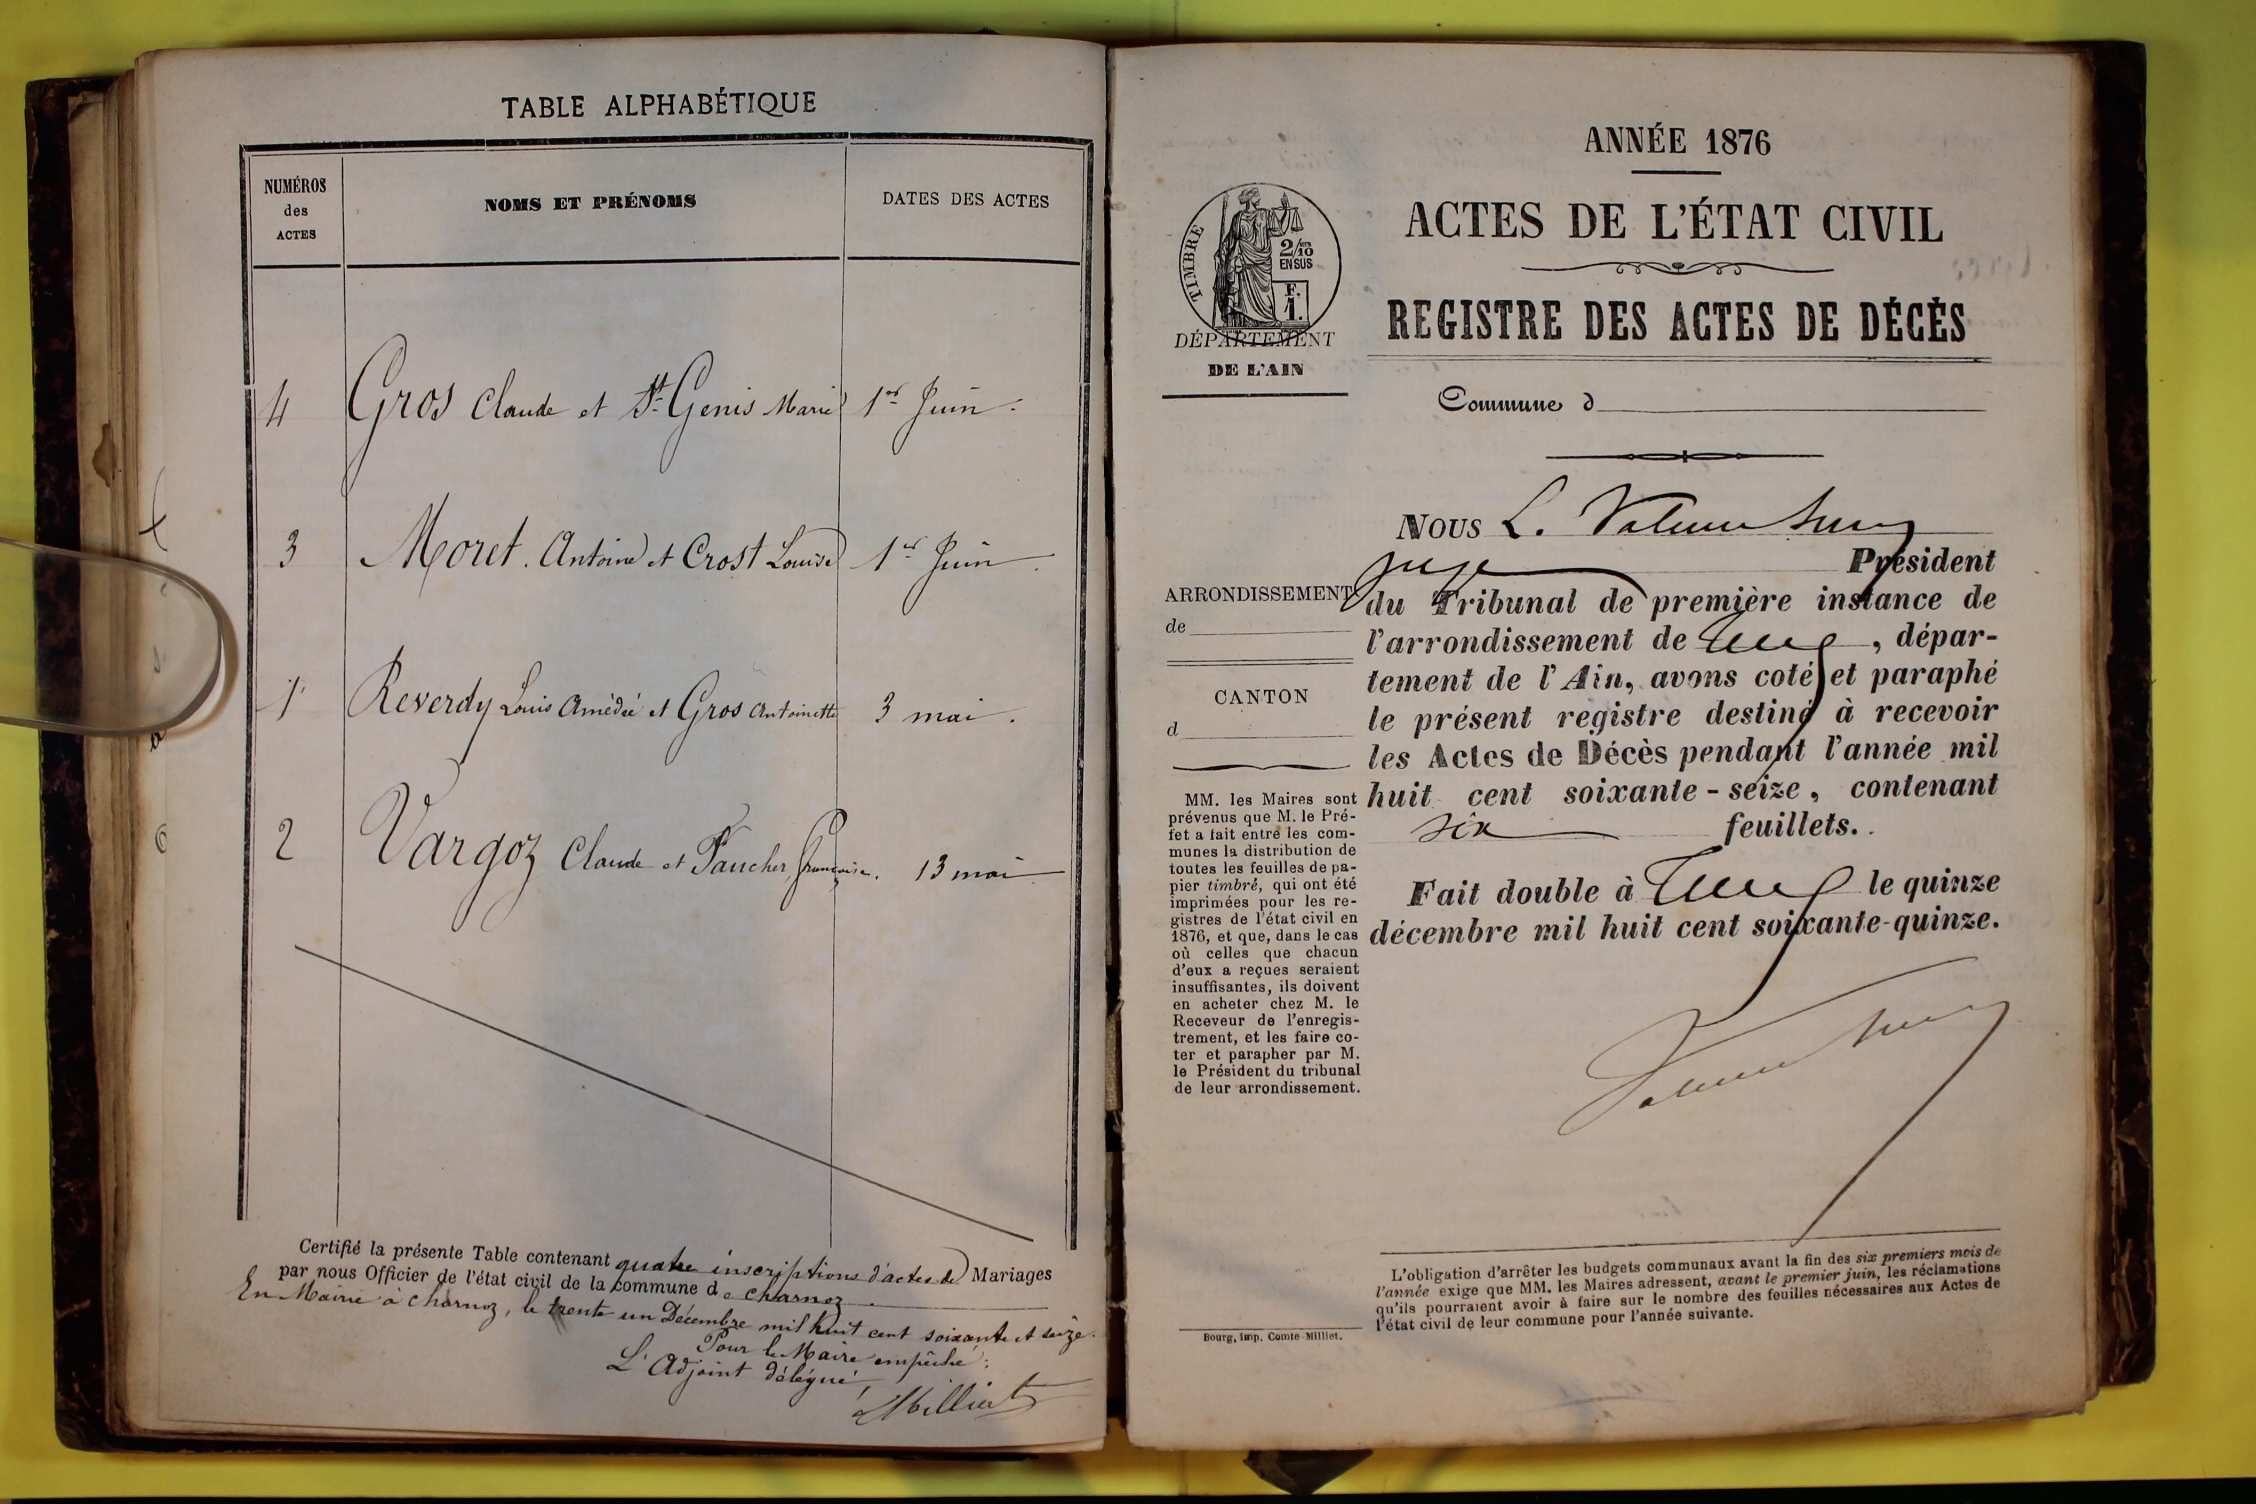 TABLE ALPHABÉTIQUE
NUMÉROS
des
ACTES
NOMS ET PRÉNOMS
DATES DES ACTES
4 Gros Claude et St Genis Marie 1er Juin.
3 Moret. Antoine et Crost Louise 1er Juin.
1 Reverdy Louis Amédée et Gros Antoinette 3 mai.
2 Vargoz Claude et Faucher, Françoise. 13 mai
Certifié la présente Table contenant quatre inscriptions d'actes de Mariages
par nous Officier de l'état civil de la commune de Charnoz
En Mairie à Charnoz, le trente un Décembre mil huit cent soixante et seize.
Pour le Maire empêché:
L'Adjoint délégué,
Milliet
ANNÉE 1876
ACTES DE L'ÉTAT CIVIL
REGISTRE DES ACTES DE DÉCÈS
TIMBRE
2/10
EN SUS
F.
1.
DÉPARTEMENT
DE L'AIN
Commune d
ARRONDISSEMENT
de
CANTON
d
MM. les Maires sont
prévenus que M. le Pré-
fet a fait entre les com-
munes la distribution de
toutes les feuilles de pa-
pier timbré, qui ont été
imprimées pour les re-
gistres de l'état civil en
1876, et que, dans le cas
où celles que chacun
d'eux a reçues seraient
insuffisantes, ils doivent
en acheter chez M. le
Receveur de l'enregis-
trement, et les faire co-
ter et parapher par M.
le Président du tribunal
de leur arrondissement.
Bourg, imp. Comte-Milliet.
NOUS L.
juge Président
du Tribunal de première instance de
l'arrondissement de , dépar-
tement de l'Ain, avons coté et paraphé
le présent registre destiné à recevoir
les Actes de Décès pendant l'année mil
huit cent soixante-seize, contenant
six feuillets.
Fait double à le quinze
décembre mil huit cent soixante-quinze.
L'obligation d'arrêter les budgets communaux avant la fin des six premiers mois de
l'année exige que MM. les Maires adressent, avant le premier juin, les réclamations
qu'ils pourraient avoir à faire sur le nombre des feuilles nécessaires aux Actes de
l'état civil de leur commune pour l'année suivante.